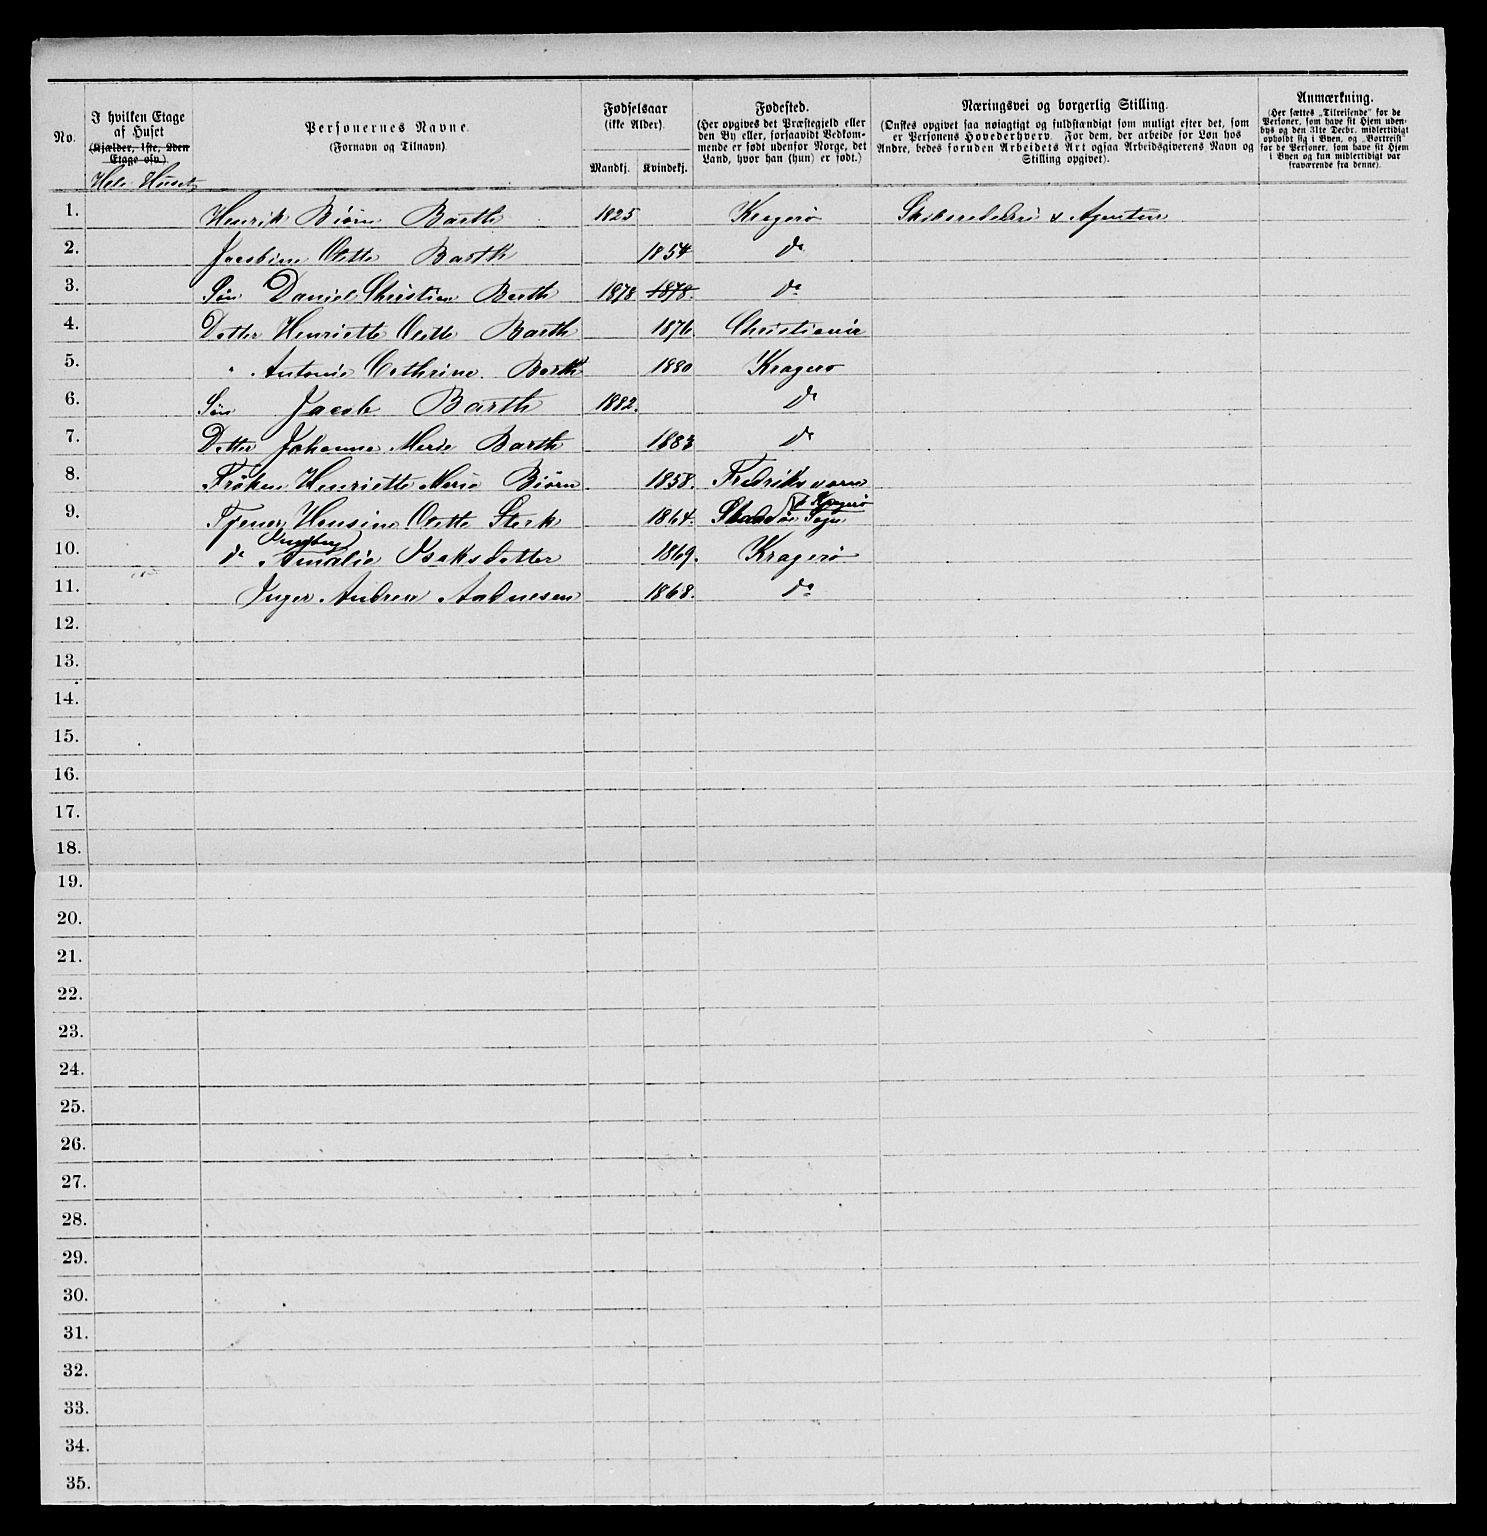 No.
I hvilken Etage
af Huset
(Kjælder, 1ste, 2den
Etage osv.)
Hele Huset
Personernes Navne.
(Fornavn og Tilnavn)
Fødselsaar
(ikke Alder).
Mandkj. Kvindekj.
Fødested.
(Her opgives det Præstegjeld eller
den By eller, forsaavidt Vedkom-
mende er født udenfor Norge, det
Land, hvor han (hun) er født.)
Næringsvei og borgerlig Stilling.
(Ønskes opgivet saa nøiagtigt og fuldstændigt som muligt efter det, som
er Personens Hovederhverv. For dem, der arbeide for Løn hos
Andre, bedes foruden Arbeidets Art ogsaa Arbeidsgiverens Navn og
Stilling opgivet).
Anmærkning.
(Her sættes „Tilreisende" for de
Personer, som have sit Hjem uden-
bys og den 31te Decbr. midlertidigt
opholdt sig i Byen, og „Bortreist"
for de Personer, som have sit Hjem
i Byen og kun midlertidigt var
fraværende fra denne).
1. Henrik Biørn Barth 1825 Kragerø Skibsrederi & Agentur
2. Jacobine Olette Barth 1854 do
3. Søn Daniel Christian Barth 1878 1878. do
4. Datter Henriette Olette Barth 1876. Christiania
5. " Antonie Cathrine. Barth 1880 Kragerø
6. Søn Jacob Barth 1882. do
7. Datter Johanne Marie Barth 1883 do
8. Frøken Henriette Marie Biørn 1858. Fredriksværn
9. Tjener Hansine Olette Sterk 1864. Skaadø Sogn
Kragerø
10. do Amalie Isaksdatter 1869. Kragerø
11. Inger Andrea Aadnesen 1868. do
12.
13.
14.
15.
16.
17.
18.
19.
20.
21.
22.
23.
24.
25.
26.
27.
28.
29.
30.
31.
32.
33.
34.
35.